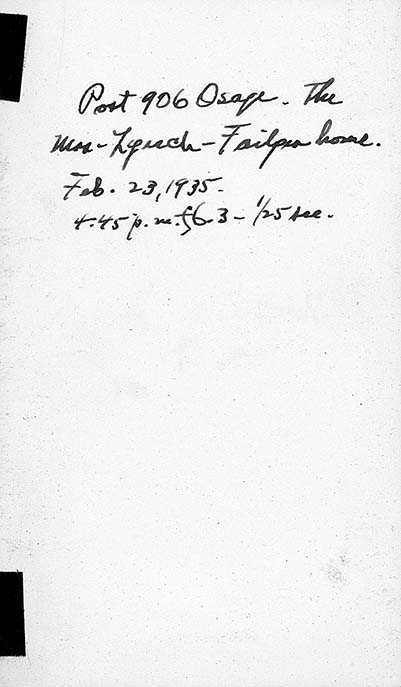 Post 906 Osage. The
Moss-Lynch-Failger home.
Feb. 23, 1935.
4.45 p.m. f6.3 - 1/25 sec.